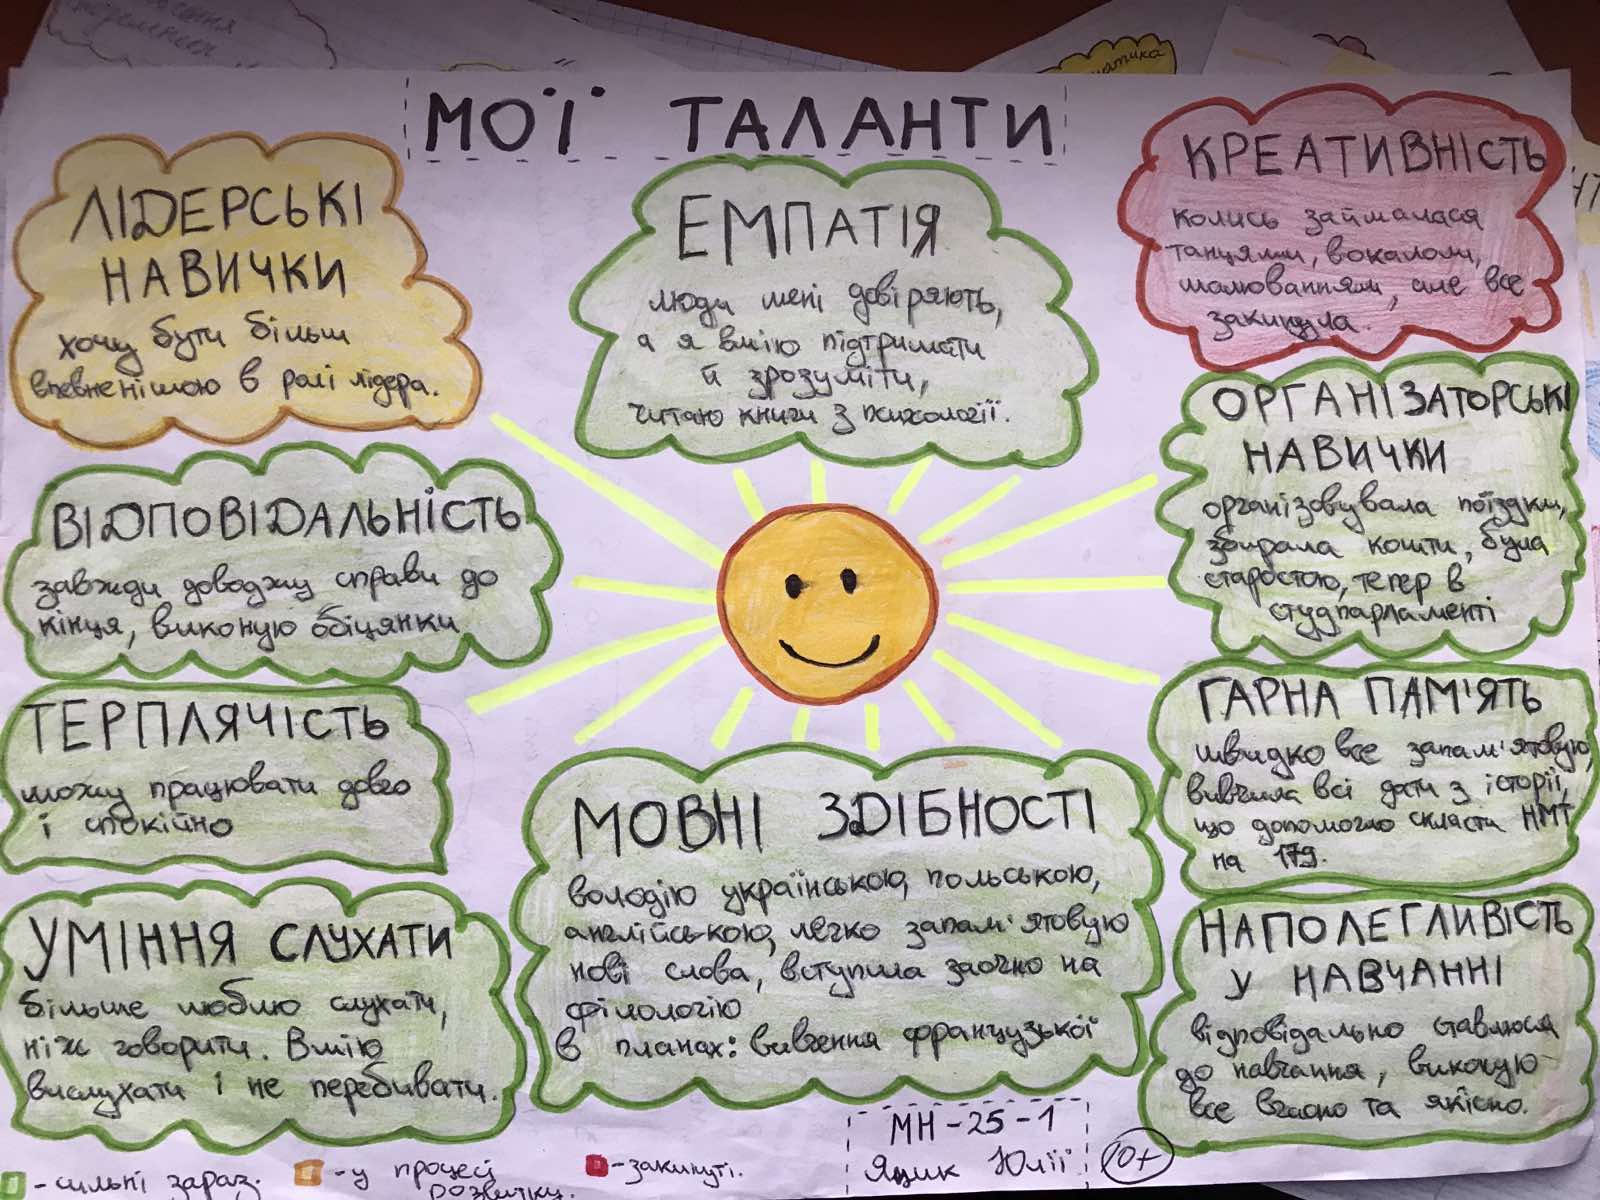 МОЇ ТАЛАНТИ
ЛІДЕРСЬКІ
НАВИЧКИ
хочу бути більш
впевненішою в ролі лідера.
ЕМПАТІЯ
люди мені довіряють,
а я вмію підтримати
й зрозуміти,
читаю книги з психології.
КРЕАТИВНІСТЬ
колись займалася
танцями, вокалом,
малюванням, але все
закинула.
ВІДПОВІДАЛЬНІСТЬ
завжди доводжу справи до
кінця, виконую обіцянки
ОРГАНІЗАТОРСЬКІ
НАВИЧКИ
організовувала поїздки,
збирала кошти, була
старостою, тепер в
студпарламенті
ТЕРПЛЯЧІСТЬ
можу працювати довго
і спокійно
ГАРНА ПАМ'ЯТЬ
швидко все запам'ятовую,
вивчила всі дати з історії,
що допомогло скласти НМТ
на 179.
УМІННЯ СЛУХАТИ
більше люблю слухати,
ніж говорити. Вмію
вислухати і не перебивати.
МОВНІ ЗДІБНОСТІ
володію українською, польською,
англійською, легко запам'ятовую
нові слова, вступила заочно на
філологію
в планах: вивчення французької
НАПОЛЕГЛИВІСТЬ
У НАВЧАННІ
відповідально ставлюся
до навчання, виконую
все вчасно та якісно.
МН-25-1
Яцик Юлії
10+
- сильні зараз.
- у процесі
розвитку.
- закинуті.